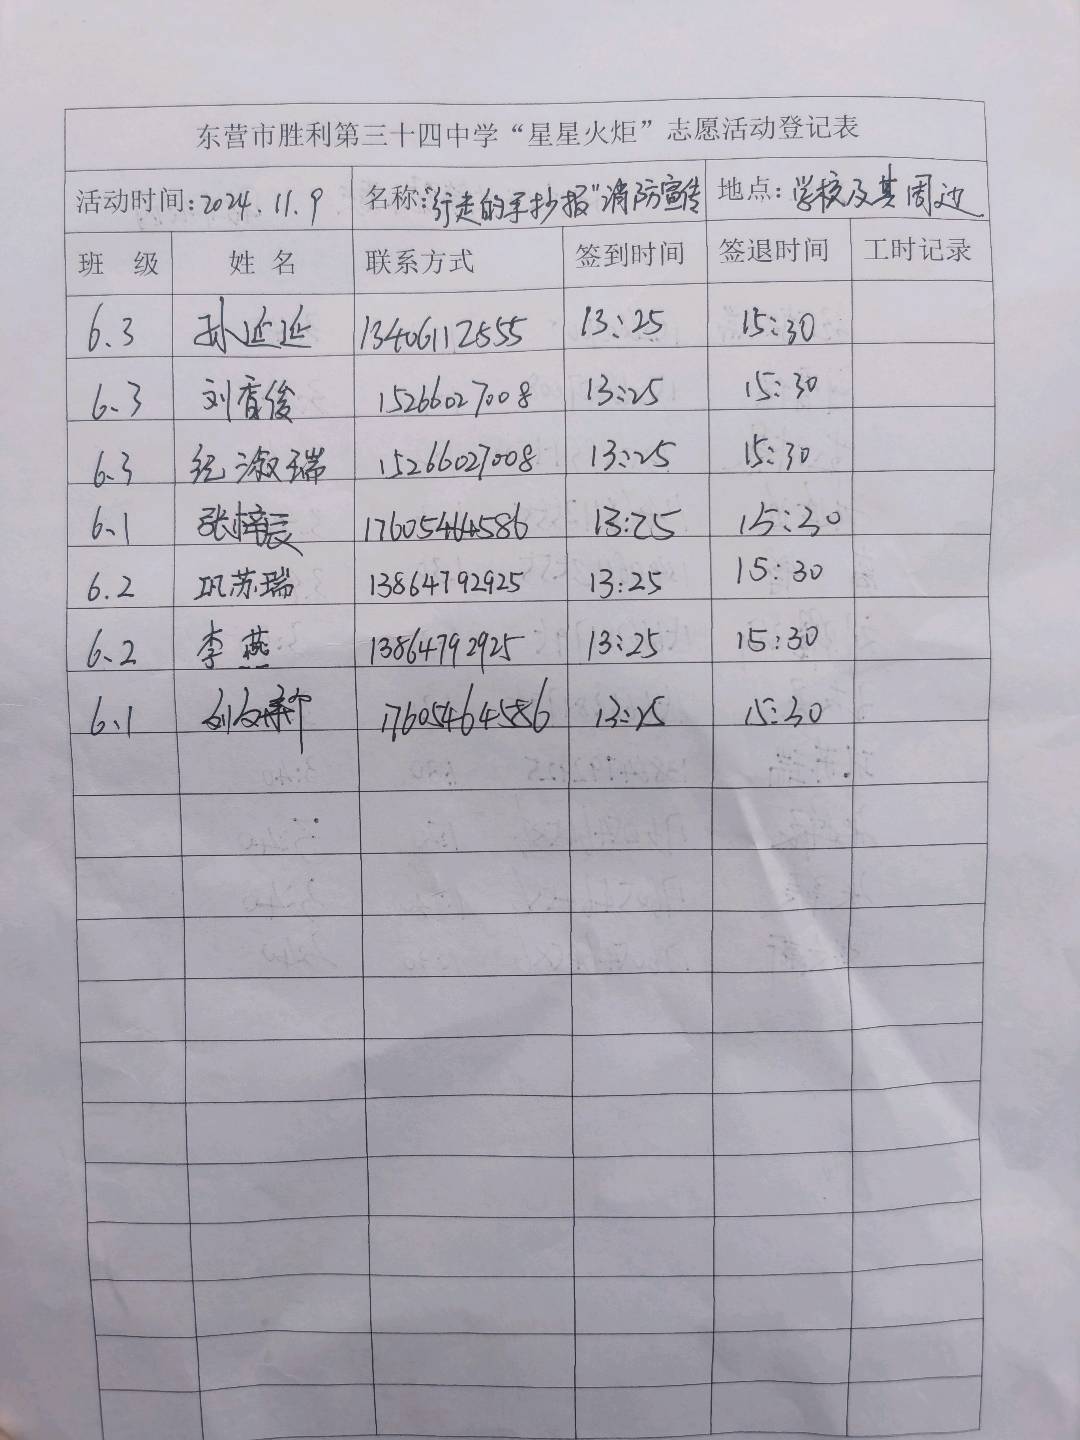 东营市胜利第三十四中学“星星火炬”志愿活动登记表
活动时间:2024.11.9 名称:“行走的手抄报”消防宣传 地点:学校及其周边
班 级 姓 名 联系方式 签到时间 签退时间 工时记录
6.3 孙延延 13406112555 13:25 15:30
6.3 刘香俊 15266027008 13:25 15:30
6.3 纪淑瑞 15266027008 13:25 15:30
6.1 张梓辰 17605464586 13:25 15:30
6.2 巩苏瑞 13864792925 13:25 15:30
6.2 李燕 13864792925 13:25 15:30
6.1 刘文 17605464586 13:25 15:30